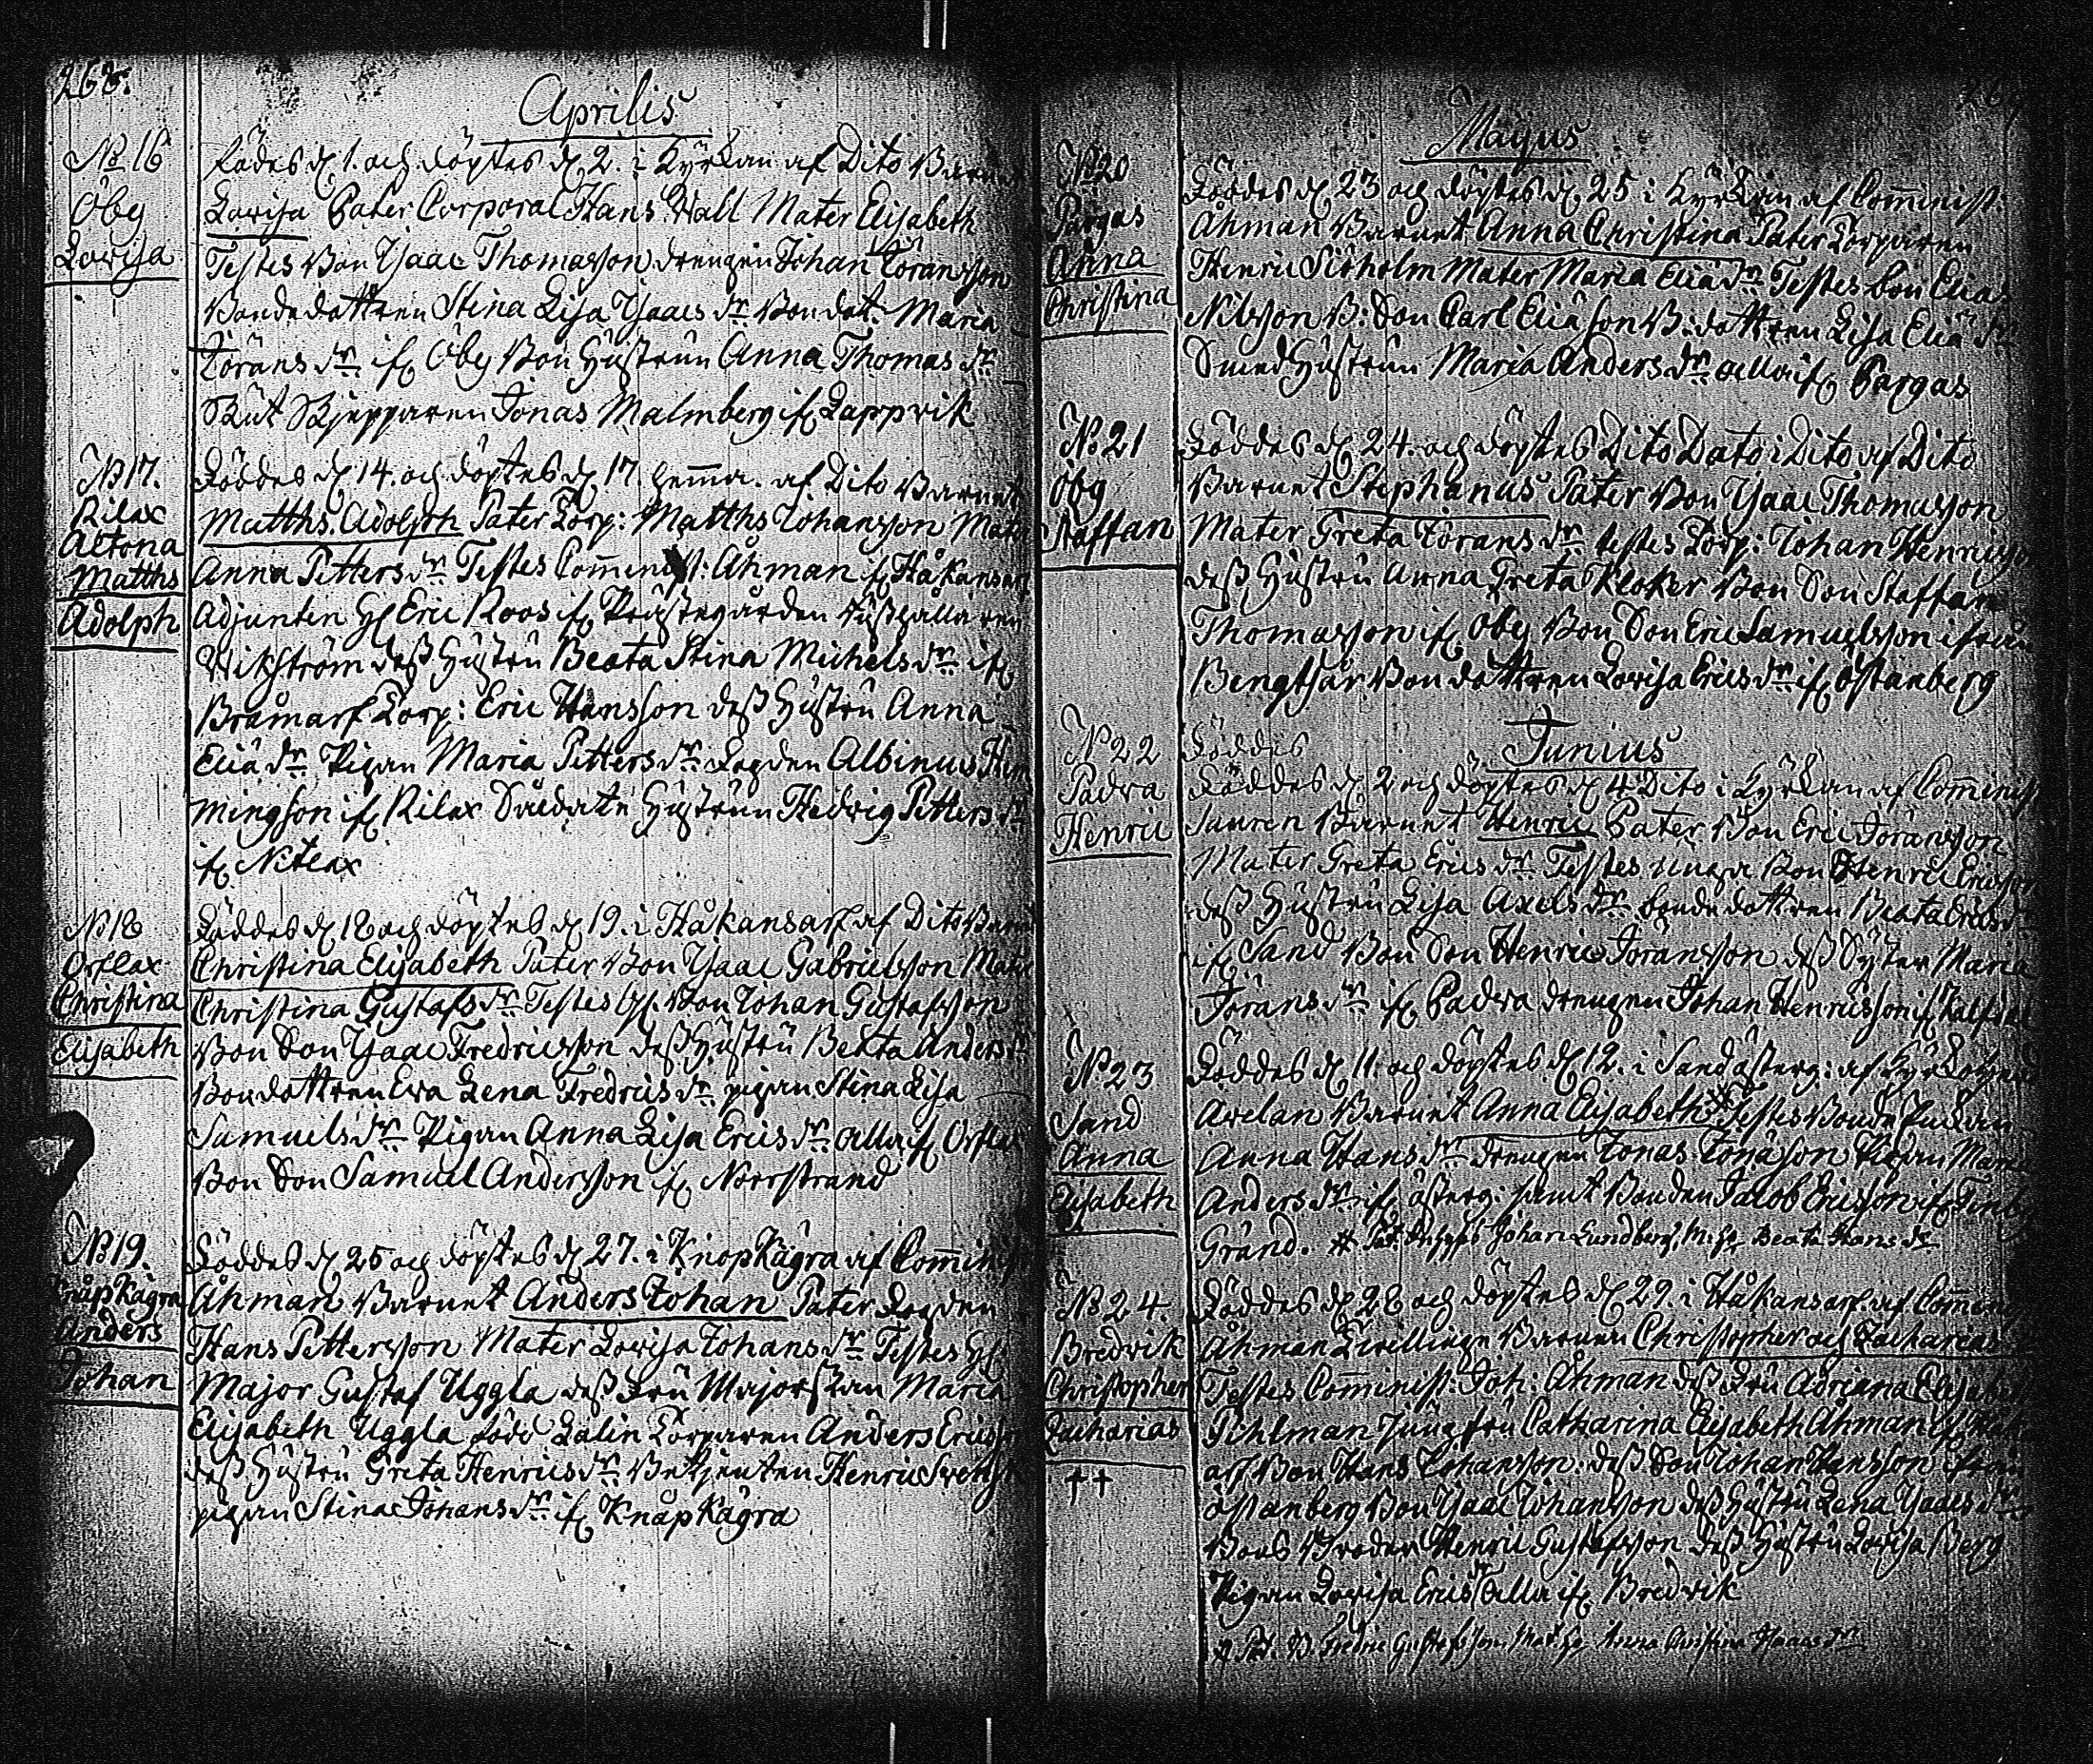 268.
Aprilis
No 16
Öby
Lovisa
Födes d. 1. och döptes d. 2. i Kyrkan af Dito Barnet
Lovisa Pater Corporal Hans Wall Mater Elisabeth
Testes Bon Isaac Thomasson drengen Johan Jöransson
Bondedottren Stina Lisa Isaacs dr. Bondot. Maria
Jörans dr. if. Öby Bon Hustrun Anna Thomas dr.
Malmberg if. Lappvik
No 17.
Rilax
Altona
Matths
Adolph
Föddes d. 14. och döptes d. 17. hemma. af Dito Barnet
Matths. Adolph Pater Torp: Matths Johansson Mater
Anna Petters dr. Testes Comminist: Åhman if Håkansarf
Adjunten H. Eric Roos if. Prästegården
Wikström dess Hustru Beata Stina Michels dr. if.
Bråmarf Torp: Eric Hansson dess Hustru Anna
Eliä dr. Pigan Maria Petters dr. Legden Albinus Hem
mingson if. Rilax Hustrun Hedvig Petters dr
if. Nitlax
No 18
Orslax
Christina
Elisabeth
Föddes d. 18 och döptes d. 19. i Håkansarf af Dito Barnet
Christina Elisabeth Pater Bon Isaac Gabrielsson Mater
Christina Gustafs dr. Testes Bon Johan Gustafsson
Bon Son Isaac Fredricsson dess Hustru Beata Anders dr
Bondottren Eva Lena Fredrics dr. pigan Stina Lisa
Samuels dr. Pigan Anna Lisa Erics dr. alla if Orslax
Bon Son Samuel Andersson if. Norrstrand
No 19.
Knåpkägra
Anders
Johan
Föddes d. 25 och döptes d. 27. i Knopkägra af Comminist
Åhman Barnet Anders Johan Pater Legden
Hans Pettersson Mater Lovisa Johans dr. Testes H.
Major Gustaf Uggla dess Fru Majorskan Maria
Elisabeth Uggla född Torparen Anders Ericsson
dess Hustru Greta Henrics dr. Betjenten Henric
pigan Stina Johans dr. if. Knåpkägra
Majus
No 20
Pargas
Anna
Christina
Föddes d. 23 och döptes d. 25 i Kyrkan af Comminist:
Åhman Barnet Anna Christina Pater Torparen
Henric Siöholm Mater Maria Eliä dr. Testes Bon Elias
Nilsson B: Son Carl Eliä son B: dottren Lisa Eliä dr
Smed Hustrun Maria Anders dr. alla if. Pargas
No 21
Öby
Staffan
Föddes d. 24. och döptes Dito Dato i Dito af Dito
Barnet Stephanus Pater Bon Isaac Thomasson
Mater Greta Jörans dr. testes Torp: Johan Henricsson
dess Hustru Anna Greta Kloker Bon Son Staffan
Thomasson if. Öby Bon Son Eric Samuelsson ifrån
Bengtsår Bondottren Lovisa Erics dr. if. Östanberg
Junius
No 22
Padva
Henric
Föddes
Föddes d. 2 och döptes d. 4 Dito i Kyrkan af Comminist
Barnet Henric Pater Bon Eric Jöransson
Mater Greta Erics dr. Testes unga Bon Henric Ericsson
dess Hustru Lisa Axels dr. bondedottren Beata Erics dr
if. Sand Bon Son Henric Jöransson dess Syster Maria
Jörans dr. if. Padva drengen Johan Henricsson if.
No 23
Sand
Anna
Elisabeth
Föddes d. 11. och döptes d. 12. i Sand österg: af
Avelan Barnet Anna Elisabeth Testes
Anna Hans dr. drengen Jonas Jonäson Pigan Maria
Anders dr. if. österg: samt Bonden Jacob Ericsson if.
Gränd. # Pat. Johan Lundberg, M. H. Beata Hans dr
No 24.
Bredvik
Christopher
Zacharias
††
Föddes d. 28 och döptes d. 29. i Håkansarf. af Commin
Åhman Twillinge Barnen Christopher och Zacharias
Testes Comminist: Joh: Åhman dess Fru Adriana Elisabeth
Pihlman Jungfru Catharina Elisabeth Åhman if Håkans
arf Bon Hans Johansson: dess Son Johan Hansson ifrån
östanberg Bon Isaac Johansson dess Hustru Lena Isaacs dr.
Bons Broder Henric Gustafsson dess Hustru Lovisa Berg
Pigan Lovisa Erics dr alla if. Bredvik
# Pat. B. Fredric Gustafsson Mat. H. Anna Christina